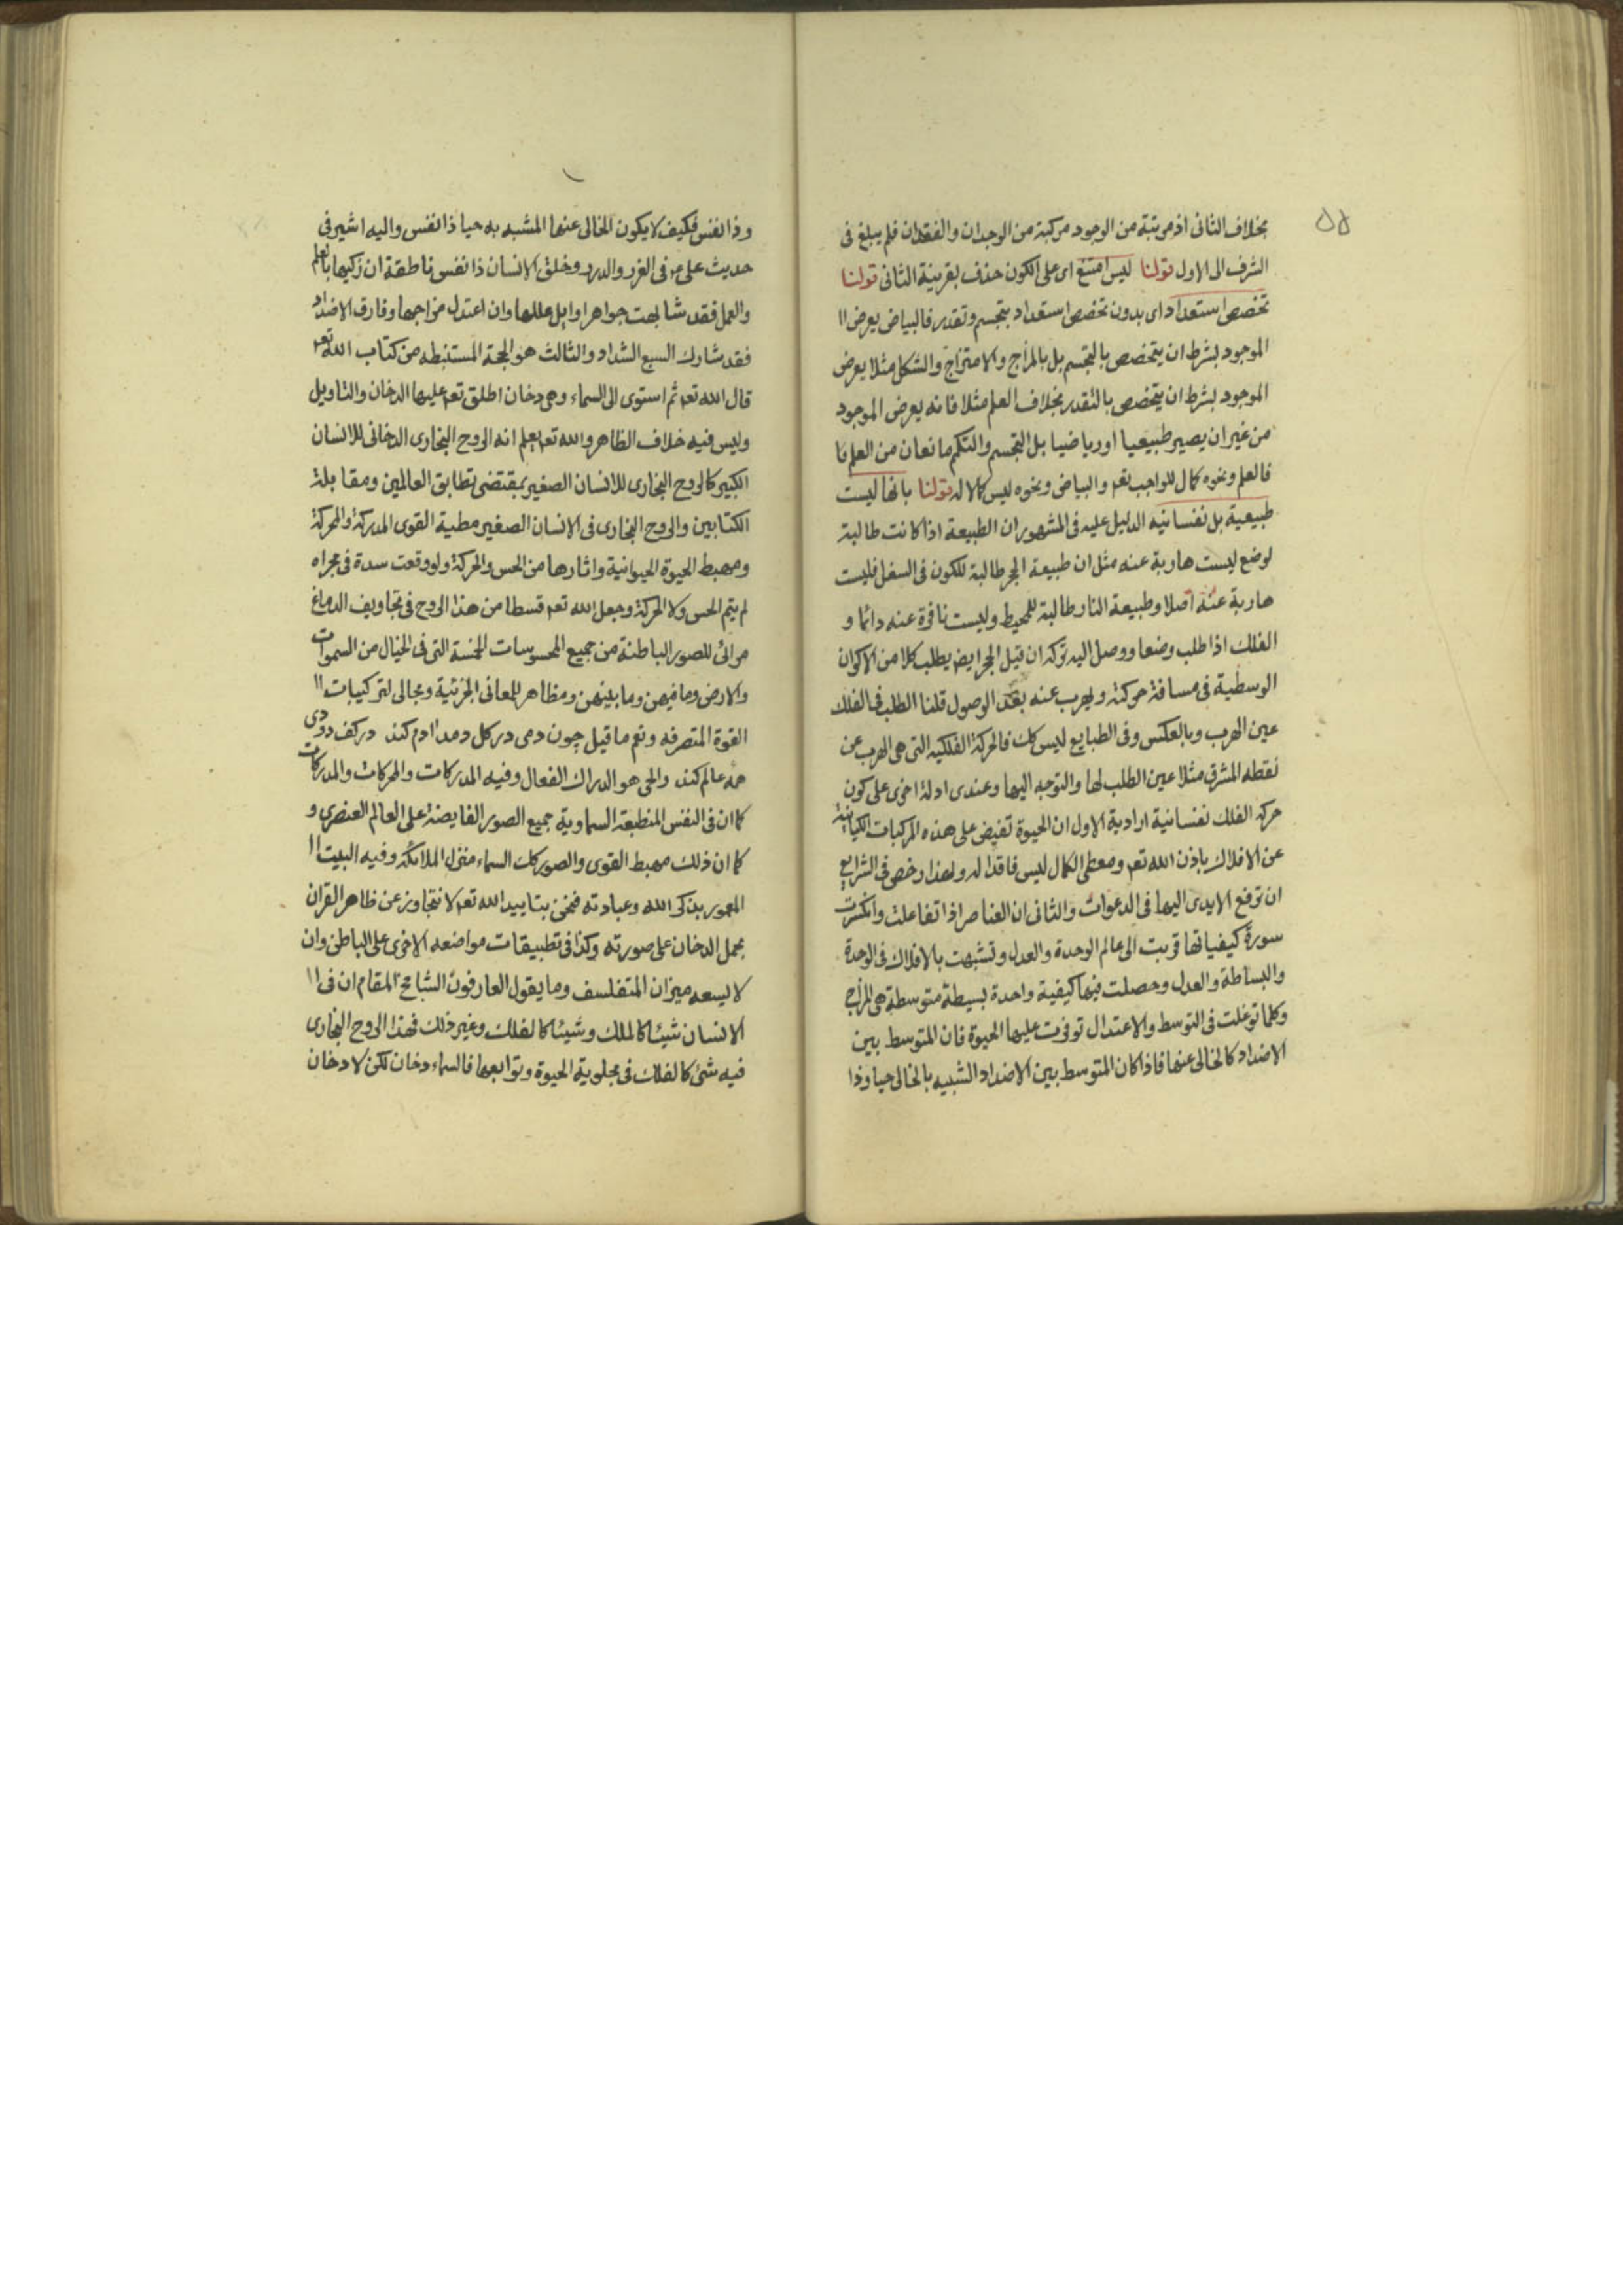 ۵۵
بخلاف الثانى اذ مرتبة من الوجود مركبة من الوجدان والفقدان فلم يبلغ فى
الشرف الى الاول قولنا ليس امتنع اى على الكون حذف بقرينة الثانى قولنا
تخصص استعداد اى بدون تخصص استعداد بتجسم وتقدر فالبياض يعرض اا
الموجود بشرط ان يتخصص بالتجسم بل بالمزاج والامتزاج والشكل مثلا يعرض
الموجود بشرط ان يتخصص بالتقدر بخلاف العلم مثلا فانه يعرض الموجود
من غير ان يصير طبيعيا او رياضيا بل التجسم والتكمم مانعان من العلم فا
فالعلم ونحوه كمال للواجب تعم والبياض ونحوه ليس كمالا له قولنا بانها ليست
طبيعية بل نفسانيه الدليل عليه فى المشهور ان الطبيعة اذا كانت طالبة
لوضع ليست هاربة عنه مثل ان طبيعة الحجر طالبة للكون فى السفل فليست
هاربة عنه اصلا وطبيعة النار طالبة للمحيط وليست نافرة عنه دائما و
الفلك اذا طلب وضعا ووصل اليه تركه ان قيل الحجر ايض يطلب كلا من الاكوان
الوسطية فى مسافة حركته ويهرب عنه بعد الوصول قلنا الطلب فى الفلك
عين الهرب وبالعكس وفى الطبايع ليس كك فالحركة الفلكيه التى هى الهرب عن
نقطه المشرق مثلا عين الطلب لها والتوجه اليها وعندى ادلة اخرى على كون
حركة الفلك نفسانية ارادية الاول ان الحيوة تفيض على هذه المركبات الكيانية
عن الافلاك باذن الله تعم ومعطى الكمال ليس فاقدا له ولهذا رخص فى الشرايع
ان ترفع الايدى اليها فى الدعوات والثانى ان العناصر اذا تفاعلت وانكسرت
سورة كيفياتها قربت الى عالم الوحدة والعدل وتشبهت بالافلاك فى الوحدة
والبساطة والعدل وحصلت فيها كيفية واحدة بسيطة متوسطة هى المزاج
وكلما توغلت فى التوسط والاعتدال توفرت عليها الحيوة فان المتوسط بين
الاضداد كالخالى عنها فاذا كان المتوسط بين الاضداد الشبيه بالخالى حيا وذا
وذا نفس فكيف لا يكون الخالى عنها المشبه به حيا ذا نفس واليه اشير فى
حديث على ع فى الغرر والدرر وخلق الانسان ذا نفس ناطقة ان زكيها بالعلم
والعمل فقد شابهت جواهر اوايل عللها وان اعتدل مزاجها وفارق الاضداد
فقد شارك السبع الشداد والثالث هو الحجة المستنبطه من كتاب الله تعم
قال الله تعم ثم استوى الى السماء وهى دخان اطلق تعم عليها الدخان والتاويل
وليس فيه خلاف الظاهر والله تعم يعلم انه الروح البخارى الدخانى للانسان
الكبير كالروح البخارى للانسان الصغير بمقتضى تطابق العالمين ومقابلة
الكتابين والروح البخارى فى الانسان الصغير مطية القوى المدركة والمحركة
ومهبط الحيوة الحيوانية واثارها من الحس والحركة ولو وقعت سدة فى مجراه
لم يتم الحس ولا الحركة وجعل الله تعم قسطا من هذا الروح فى تجاويف الدماغ
مرائى للصور الباطنة من جميع المحسوسات الخمسة التى فى الخيال من السموات
والارض وما فيهن وما بينهن ومظاهر للمعانى الجزئية ومجالى لتركيبات اا
القوة المتصرفه ونعم ما قيل چون دمى در كل دمد ادم كند در كف دودى
همه عالم كند والحى هو الدراك الفعال وفيه المدركات والمحركات والمدركات
كما ان فى النفس المنطبعة السماوية جميع الصور الفايضة على العالم العنصرى و
كما ان ذلك مهبط القوى والصور كك السماء منزل الملائكة وفيه البيت اا
المعمور بذكر الله وعبادته فنحن بتاييد الله تعم لا نتجاوز عن ظاهر القران
بحمل الدخان على صورته وكذا فى تطبيقات مواضعه الاخرى على الباطن وان
لا يسعه ميزان المتفلسف وما يقول العارفون الشامخ المقام ان فى اا
الانسان شيئا كالملك وشيئا كالفلك وغير ذلك فهذا الروح البخارى
فيه شئ كالفلك فى مجلوية الحيوة وتوابعها فالسماء دخان لكن لا دخان